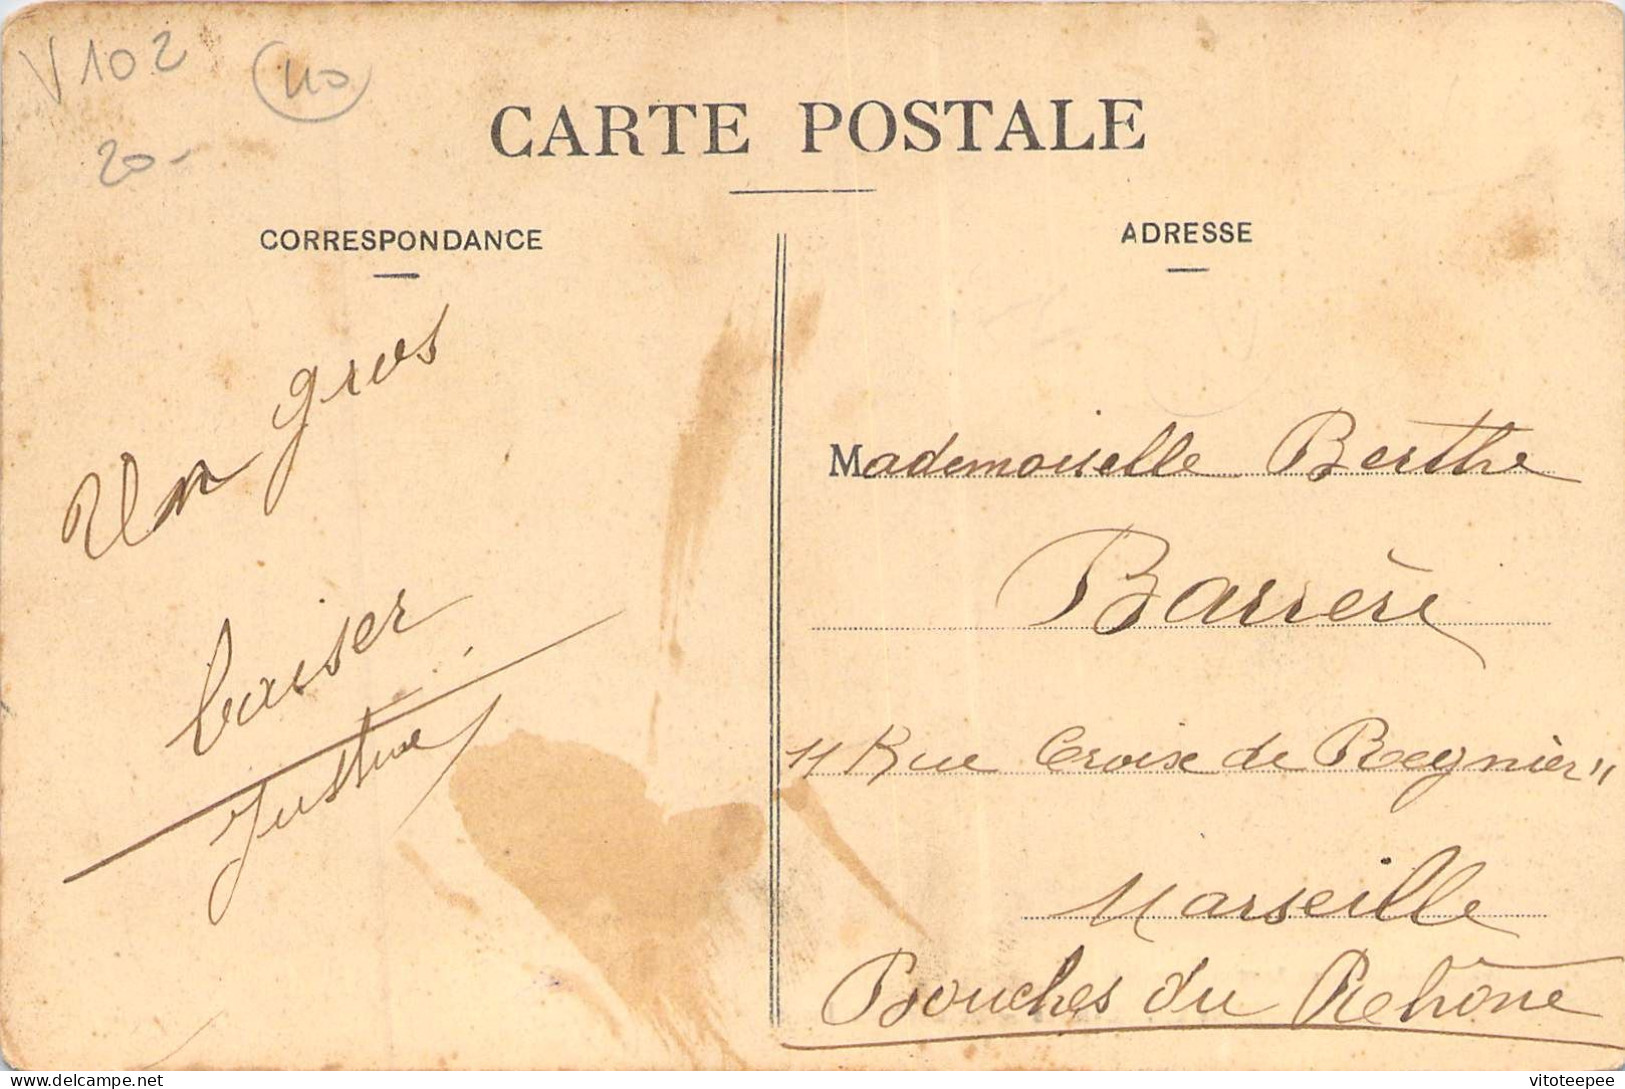 V102
40
20-
CARTE POSTALE
CORRESPONDANCE
ADRESSE
Un gros
baiser
Justine
Mademoiselle Berthe
Barrère
11 Rue Croix de Reynier "
Marseille
Bouches du Rhône
delcampe.net
vitoteepee